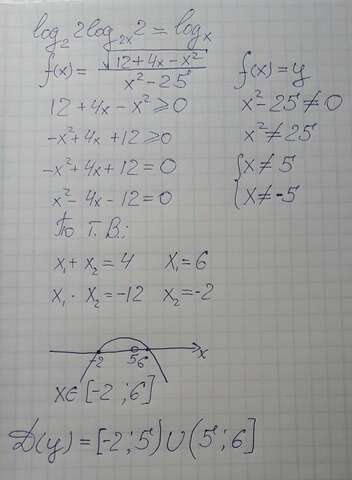 log₂ 2log₂ₓ 2 = logₓ
f(x) = √(12+4x-x²) / (x²-25)
f(x) = y
12+4x-x² ⩾ 0
x²-25 ≠ 0
-x²+4x+12 ⩾ 0
x² ≠ 25
-x²+4x+12 = 0
{x ≠ 5
x²-4x-12 = 0
{x ≠ -5
По Т. В.:
x₁+x₂ = 4 x₁ = 6
x₁·x₂ = -12 x₂ = -2
-2 5 6 x
x∈[-2;6]
D(y) = [-2;5)∪(5;6]